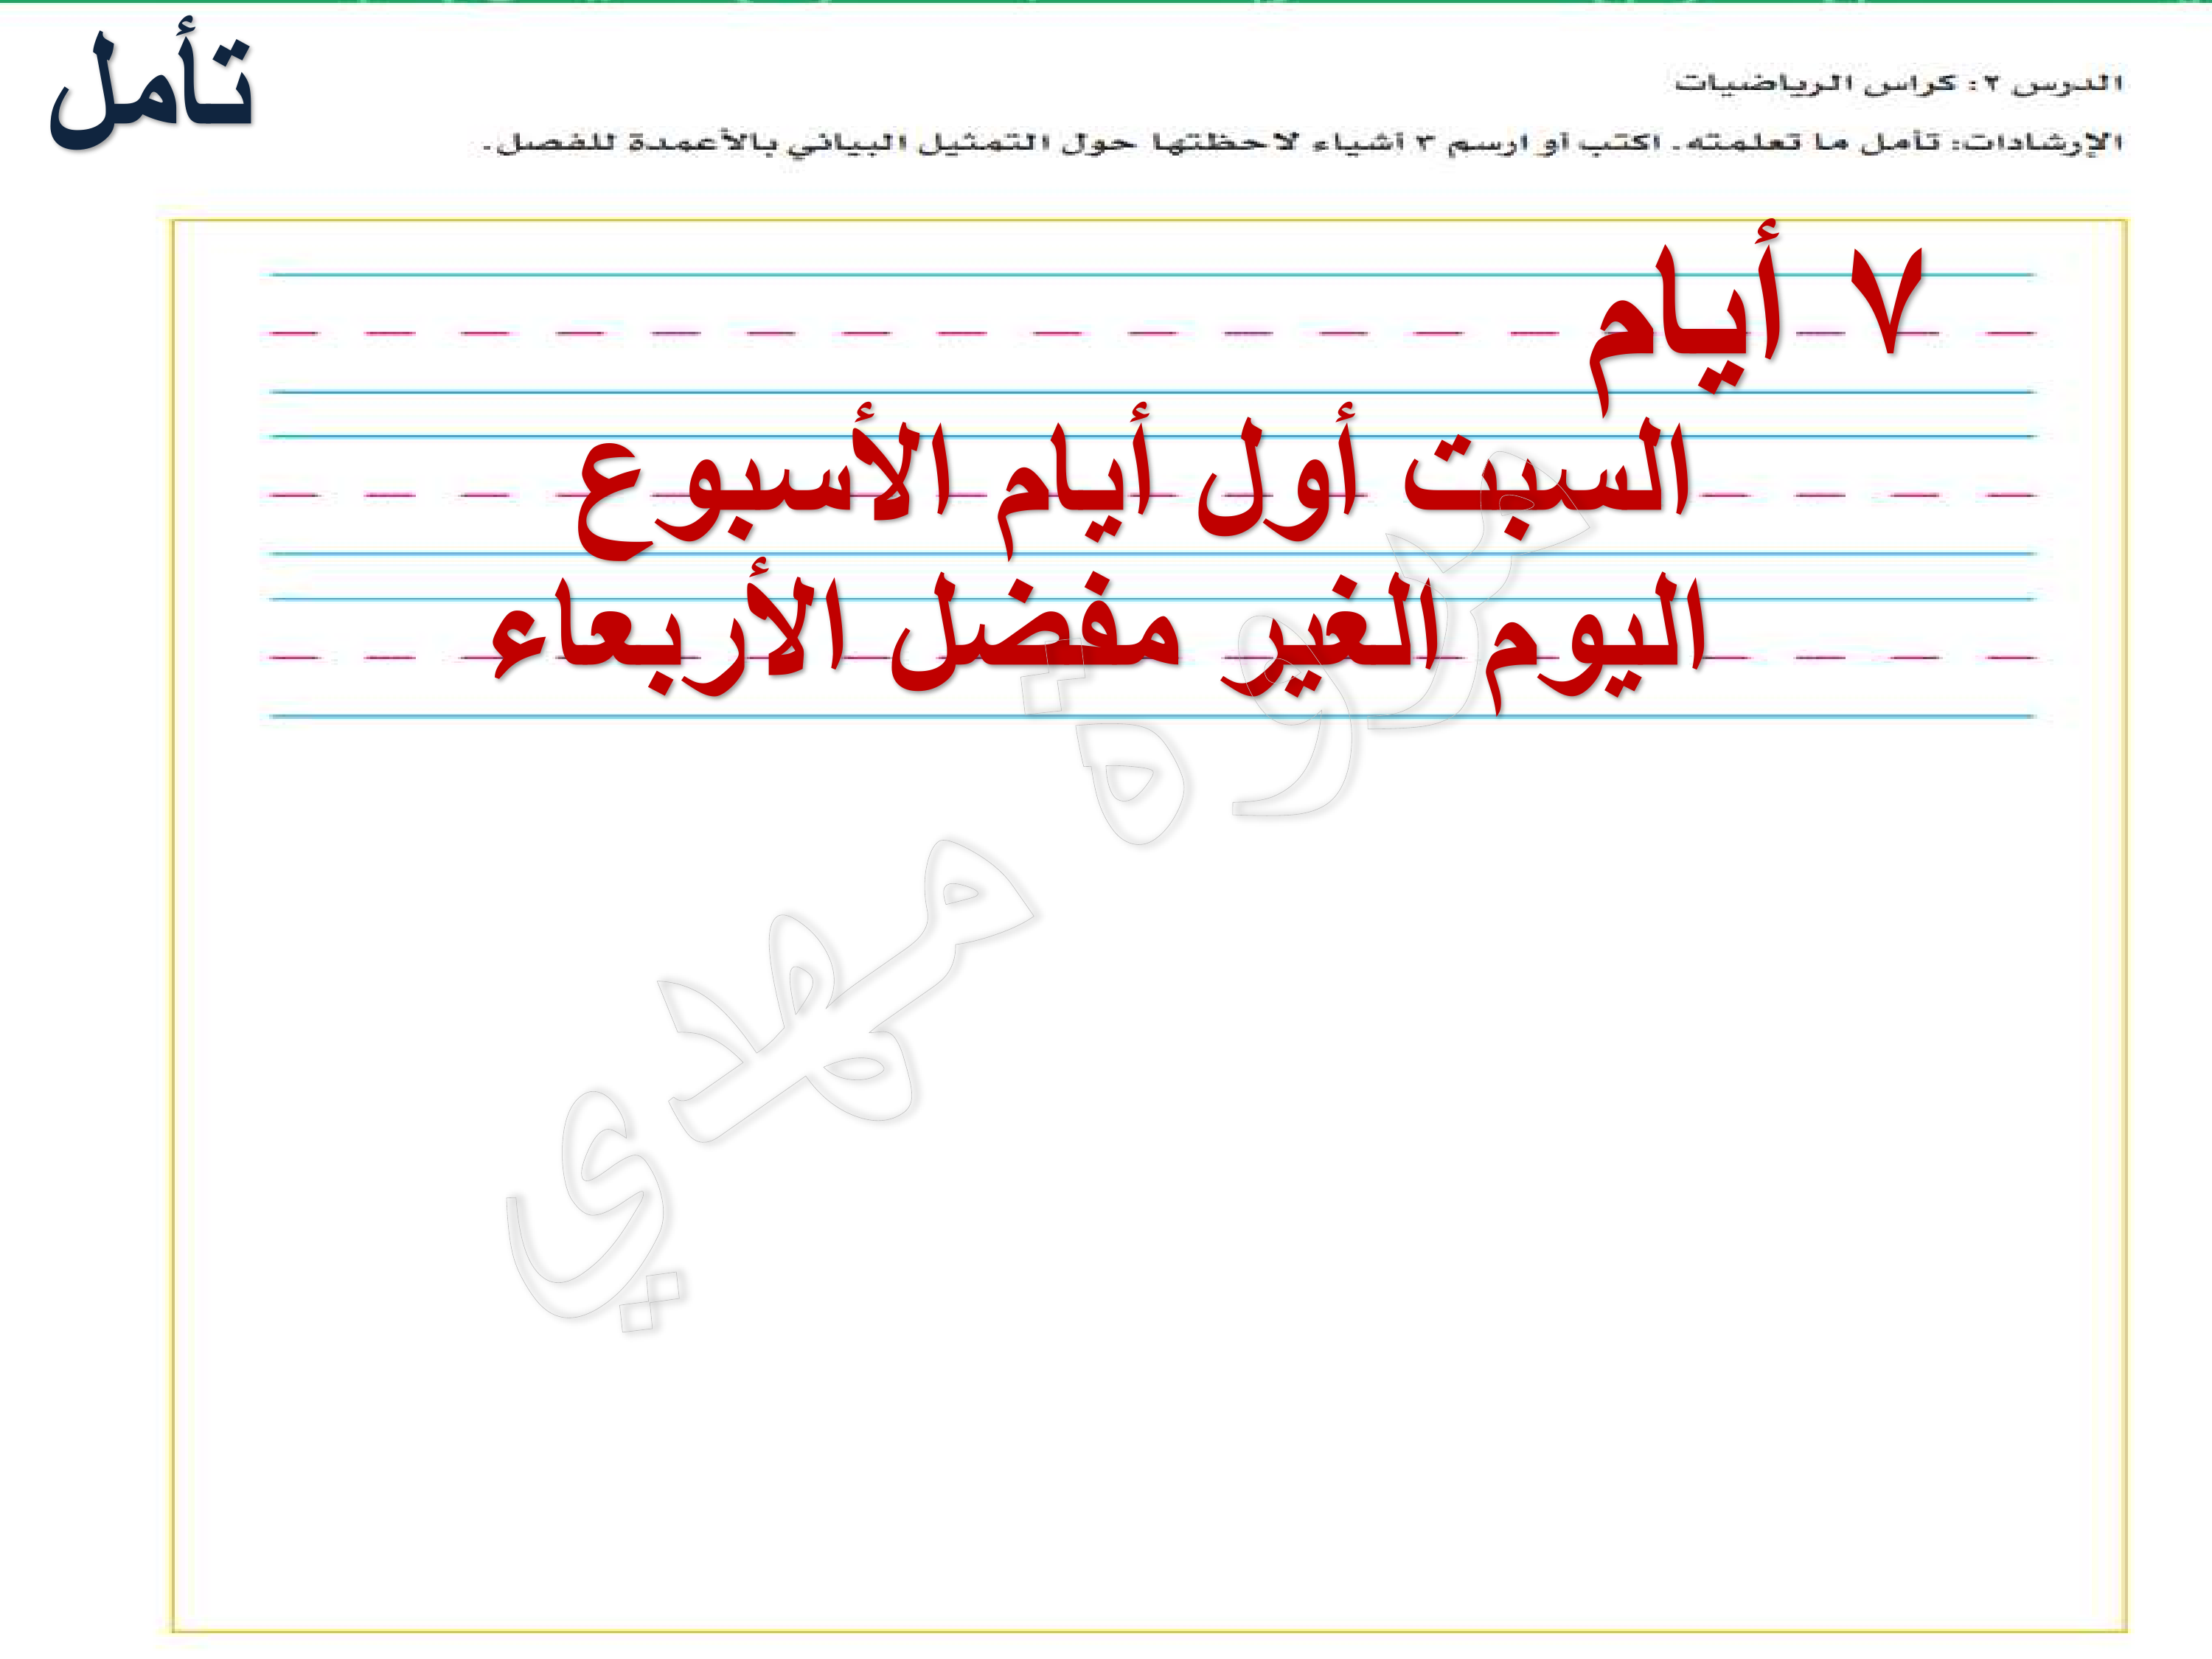 تأمل
الدرس ٢: كراس الرياضيات
الإرشادات: تأمل ما تعلمته. اكتب أو ارسم ٣ أشياء لاحظتها حول التمثيل البياني بالأعمدة للفصل.
٧ أيام
السبت أول أيام الأسبوع
اليوم الغير مفضل الأربعاء
مروة مهدي